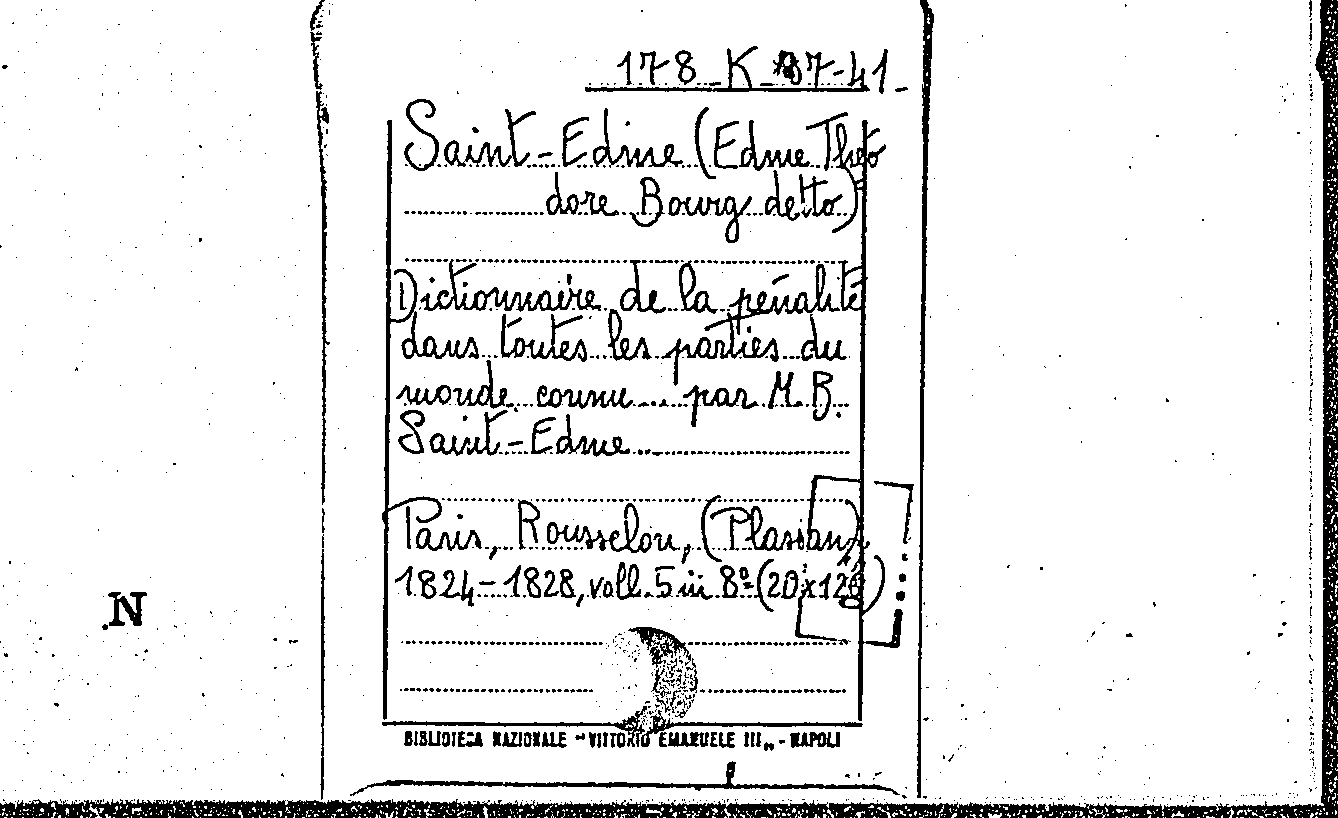 178_K_37-41_
Saint-Edme (Edme Théo
dore Bourg detto)
Dictionnaire de la pénalité
dans toutes les parties du
monde connu... par M. B.
Saint-Edme...
Paris, Rousselon, (Plassan),
1824-1828, voll. 5 in 8º (20x12
N
BIBLIOTECA NAZIONALE "VITTORIO EMANUELE III„ - NAPOLI